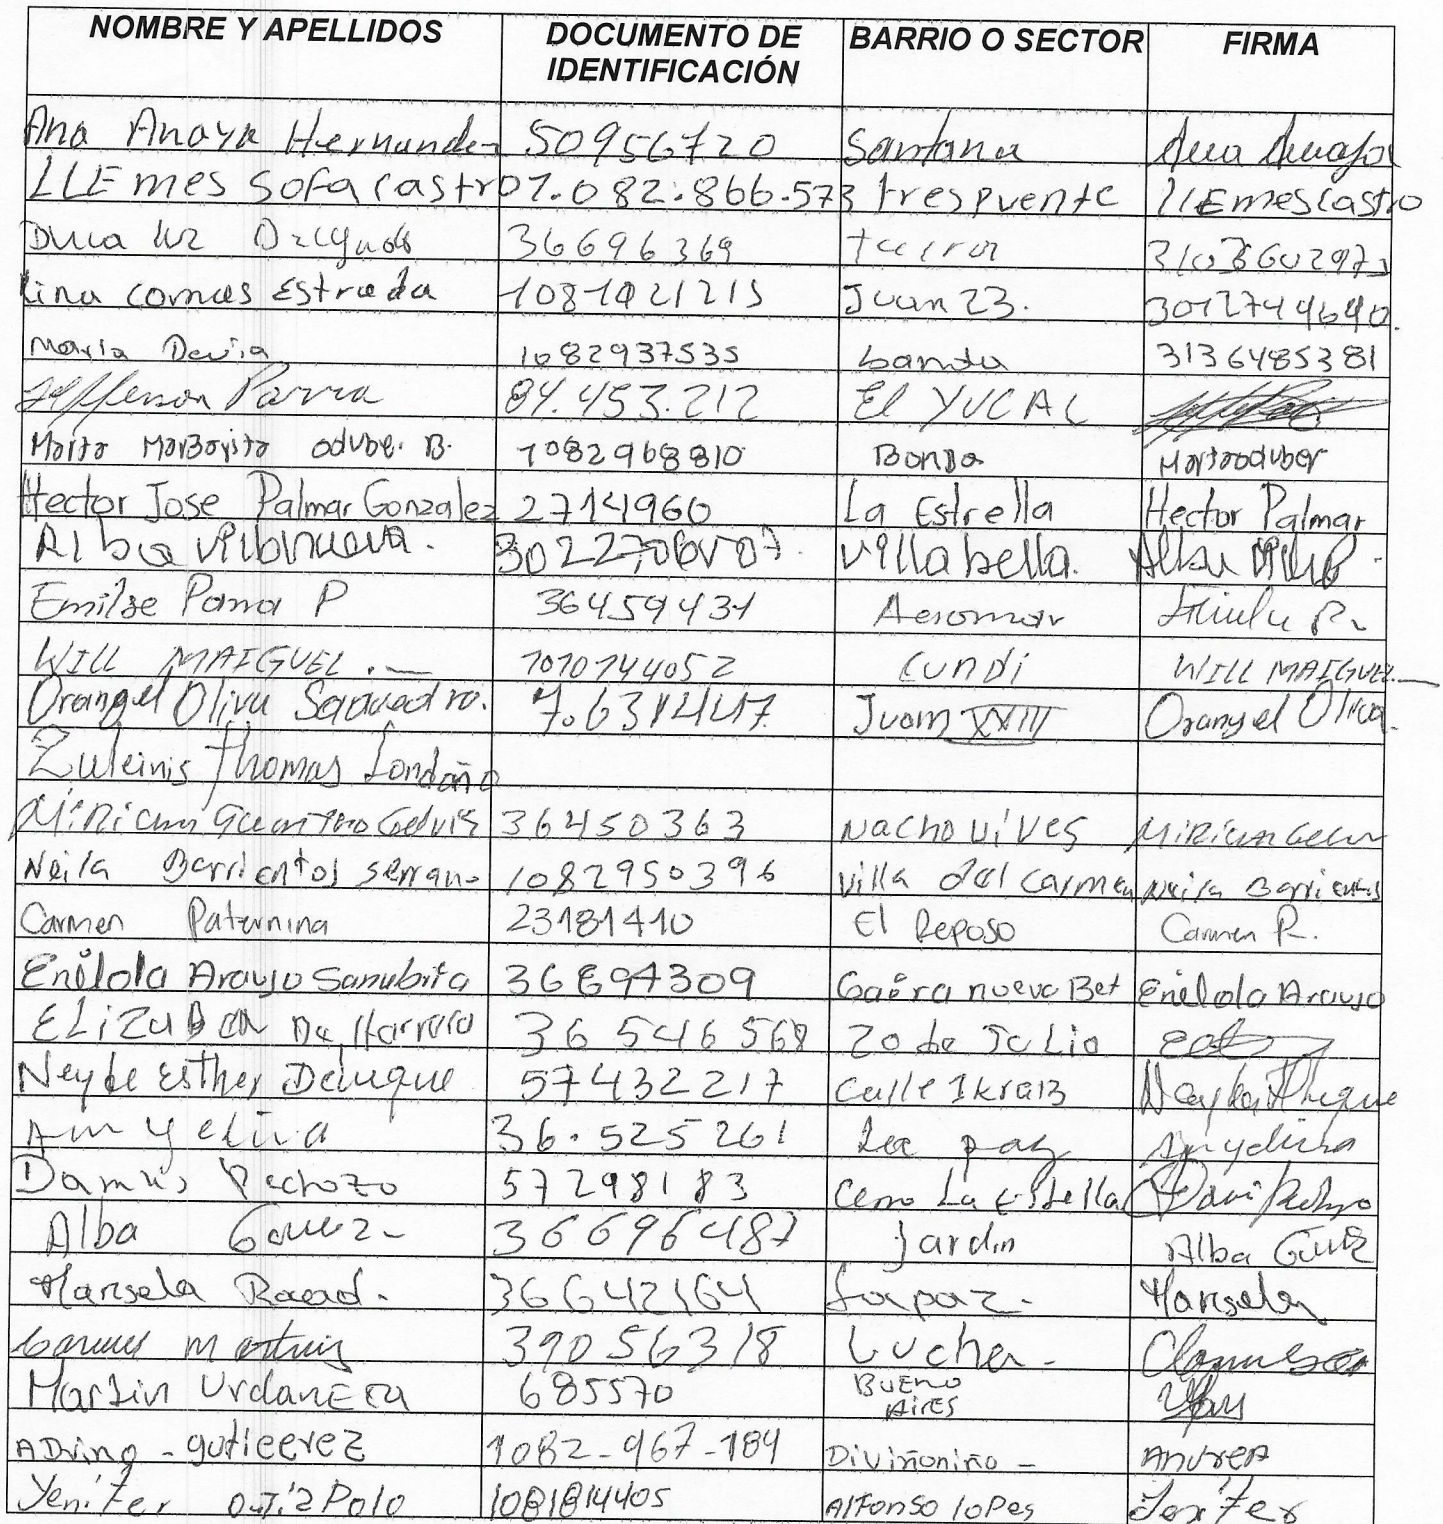 NOMBRE Y APELLIDOS DOCUMENTO DE IDENTIFICACIÓN BARRIO O SECTOR FIRMA
Ana Anaya Hernandez 50956720 Santana Ana Anaya
LLEmes Sofa Castro 1.082.866.573 trespuente llEmes Castro
Luz 36696369
Lina Comas Estrada Juan 23. 3012744640.
Maria Devia 1082937535 banda 3136485381
Jefferson Parra 84.453.212 El YUCAL
Marta Margarita oduber. B. 1082968810 Bonda Martaoduber
Hector Jose Palmar Gonzalez 27141960 La Estrella Hector Palmar
Alba villanueva. villa bella. Alba
Emilse Parra P 36459431 Aeromar
WILL MAIGUEL. 1010144052 Cundi WILL MAIGUEL.
Orangel Oliva Saavedra. Juan XXIII Orangel Oliva.
Zuleinis Thomas Londoño
Miriam 36450363 Nacho vives Miriam
Neila Barrientos serrano 1082950396 villa del carmen Neila Barrientos
Carmen Paternina 23181410 El Reposo Carmen P.
Enilda Araujo Sanubria Gaira nueva Bet Enilda Araujo
ELIZABETH De Herrera 36 546 568 20 de Julio
Neyde Esther Deluque 57432217 Calle
Amyelina 36.525261 La paz Amyelina
Pechozo 57298183 Cerro La Estrella
Alba Gamez 36696487 Jardin Alba Gamez
Marsela Raad. 36642164 La paz. Marsela
39056318 Lucha.
Martin Urdaneta 685570 BUENO AIRES
ADrina - gutieerez 1082-967-184 Diviñoniño - Andrea
Yenifer ortiz Polo 1081814405 Alfonso lopes Yenifer